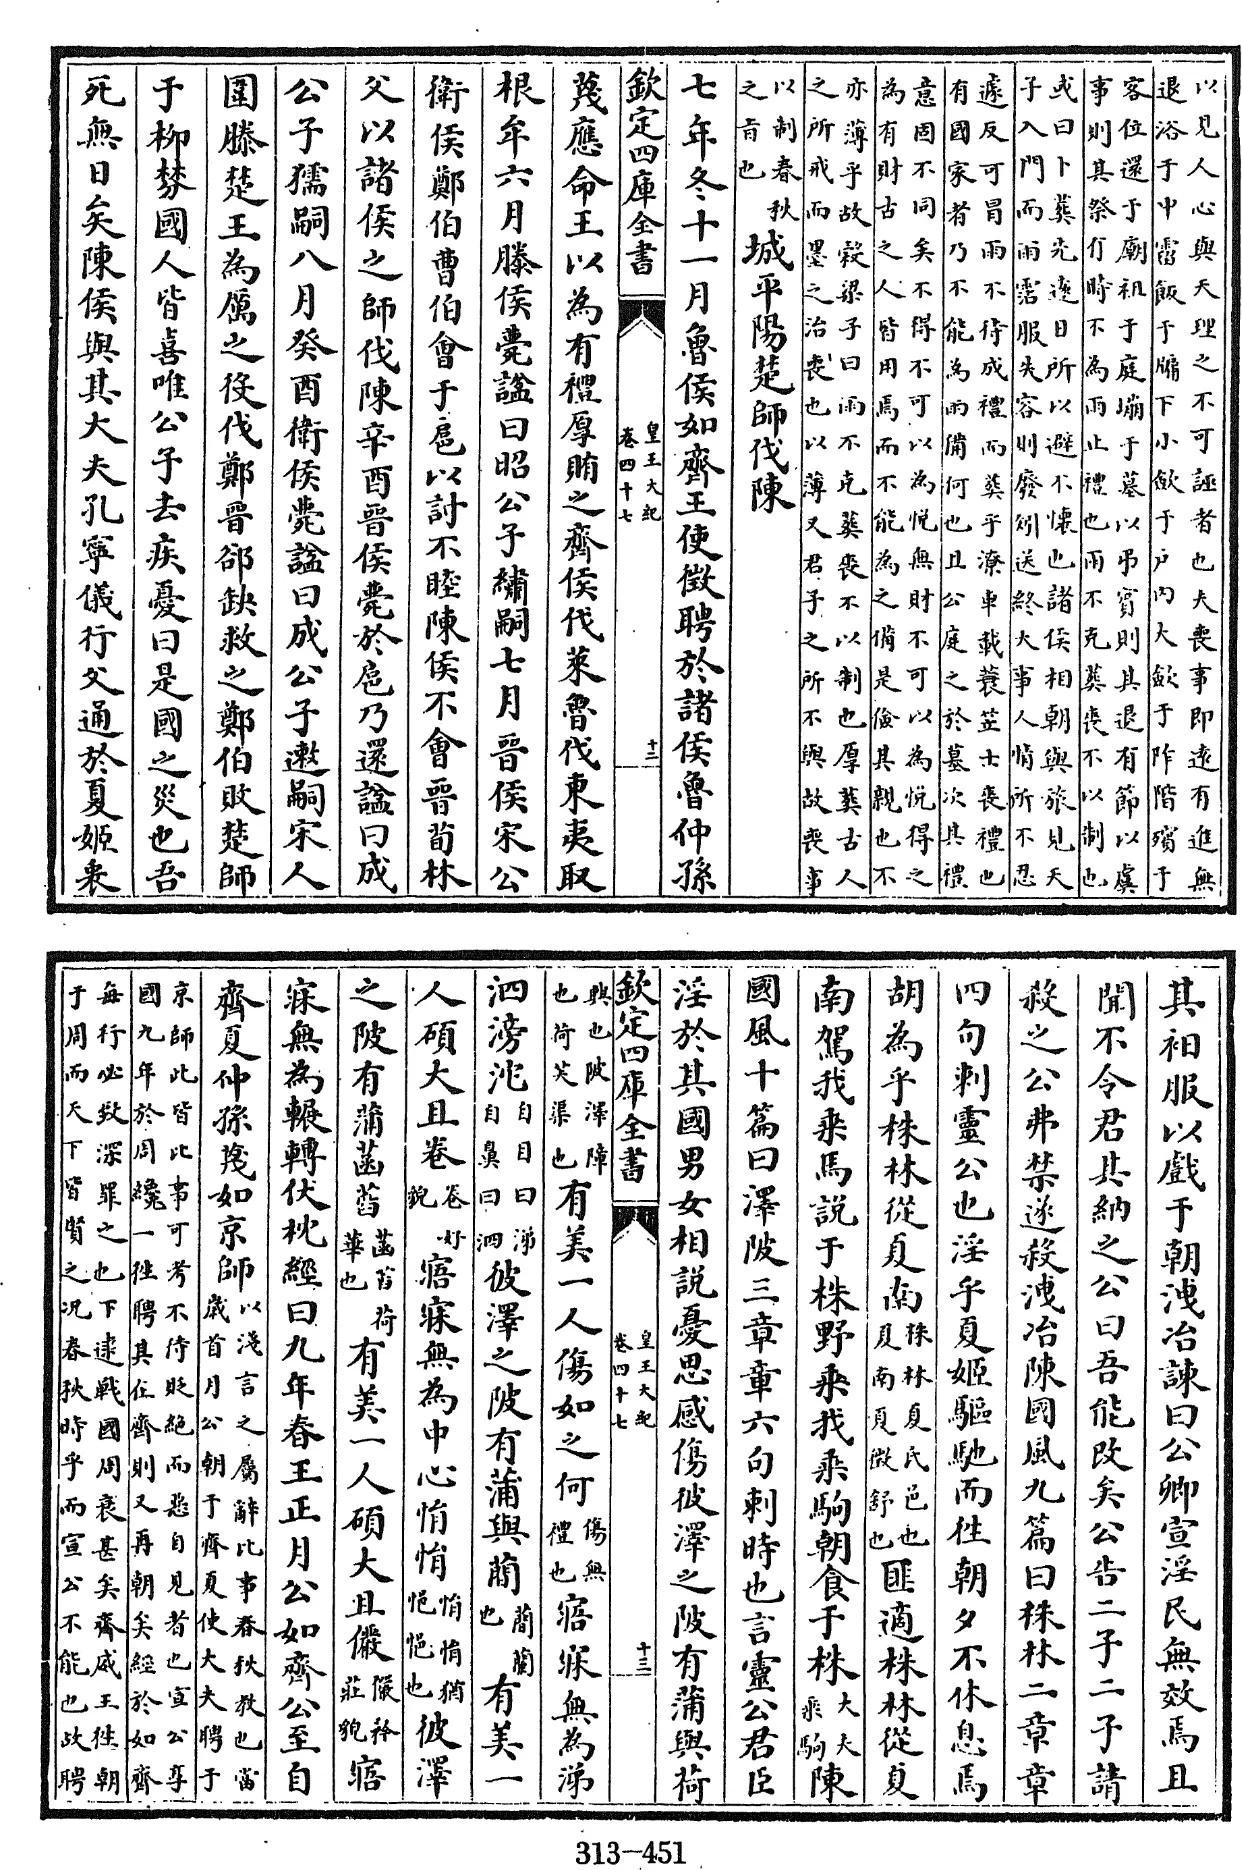 以見人心與天理之不可誣者也夫喪事即遠有進無
退浴于中霤飯于牖下小斂于户内大斂于阼階殯于
客位還于廟祖于庭塴于墓以弔賓則其退有節以虞
事則其祭有時不為雨止禮也雨不克葬喪不以制也
或曰卜葬先遠日所以避不懷也諸侯相朝與旅見天
子入門而雨霑服失容則廢矧送終大事人情所不忍
遽反可冒雨不待成禮而葬乎潦車載蓑笠士喪禮也
有國家者乃不能為雨備何也且公庭之於墓次其禮
意固不同矣不得不可以為悅無財不可以為悅得之
為有財古之人皆用焉而不能為之備是儉其親也不
亦薄乎故穀梁子曰雨不克葬喪不以制也厚葬古人
之所戒而墨之治喪也以薄又君子之所不與故喪事
以制春秋
之旨也
城平陽楚師伐陳
七年冬十一月魯侯如齊王使徵聘於諸侯魯仲孫
欽定四庫全書
皇王大紀
卷四十七
十二
蔑應命王以為有禮厚賄之齊侯伐萊魯伐東夷取
根牟六月滕侯薨諡曰昭公子繡嗣七月晉侯宋公
衛侯鄭伯曹伯會于扈以討不睦陳侯不會晉荀林
父以諸侯之師伐陳辛酉晉侯薨於扈乃還諡曰成
公子獳嗣八月癸酉衛侯薨諡曰成公子遫嗣宋人
圍滕楚王為厲之役伐鄭晉郤缺救之鄭伯敗楚師
于柳棼國人皆喜唯公子去疾憂曰是國之災也吾
死無日矣陳侯與其大夫孔寧儀行父通於夏姬衷
其衵服以戲于朝洩冶諫曰公卿宣淫民無效焉且
聞不令君其納之公曰吾能改矣公告二子二子請
殺之公弗禁遂殺洩冶陳國風九篇曰株林二章章
四句刺靈公也淫乎夏姬驅馳而往朝夕不休息焉
胡為乎株林從夏南
株林夏氏邑也
夏南夏徵舒也
匪適株林從夏
南駕我乘馬說于株野乘我乘駒朝食于株
大夫
乘駒
陳
國風十篇曰澤陂三章章六句刺時也言靈公君臣
淫於其國男女相說憂思感傷彼澤之陂有蒲與荷
欽定四庫全書
皇王大紀
卷四十七
十三
興也陂澤障
也荷芙渠也
有美一人傷如之何
傷無
禮也
寤寐無為涕
泗滂沱
自目曰涕
自鼻曰泗
彼澤之陂有蒲與蕑
蕑蘭
也
有美一
人碩大且卷
卷好
貌
寤寐無為中心悁悁
悁悁猶
悒悒也
彼澤
之陂有蒲菡萏
菡萏荷
華也
有美一人碩大且儼
儼矜
莊貌
寤
寐無為輾轉伏枕經曰九年春王正月公如齊公至自
齊夏仲孫蔑如京師
以淺言之屬辭比事春秋教也當
歲首月公朝于齊夏使大夫聘于
京師此皆比事可考不待貶絶而惡自見者也宣公享
國九年於周纔一往聘其在齊則又再朝矣經於如齊
每行必致深罪之也下逮戰國周衰甚矣齊威王往朝
于周而天下皆賢之况春秋時乎而宣公不能也故聘
313—451